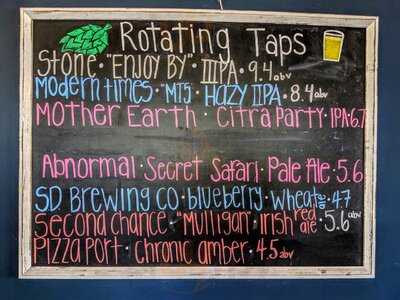 Rotating Taps
Stone · "ENJOY BY" · IIIPA · 9.4 abv
Modern times · "MTS" · HAZY IIPA · 8.4 abv
Mother Earth · Citra Party · IPA · 6.7
Abnormal · Secret Safari · Pale Ale · 5.6
SD Brewing Co · blueberry · wheat · 4.7
Second Chance · "Mulligan" irish red ale · 5.6 abv
Pizza Port · chronic amber · 4.5 abv